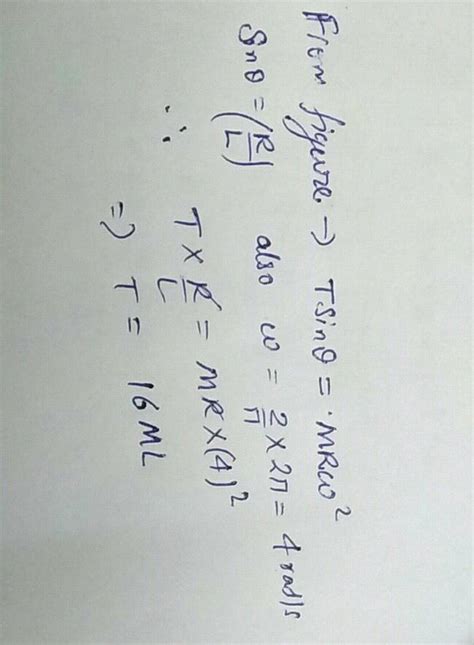 From figure → TSinθ = MRω²
Sinθ = (R/L) also ω = 2/π × 2π = 4 rad/s
∴ T × R/L = MR × (4)²
⇒ T = 16ML